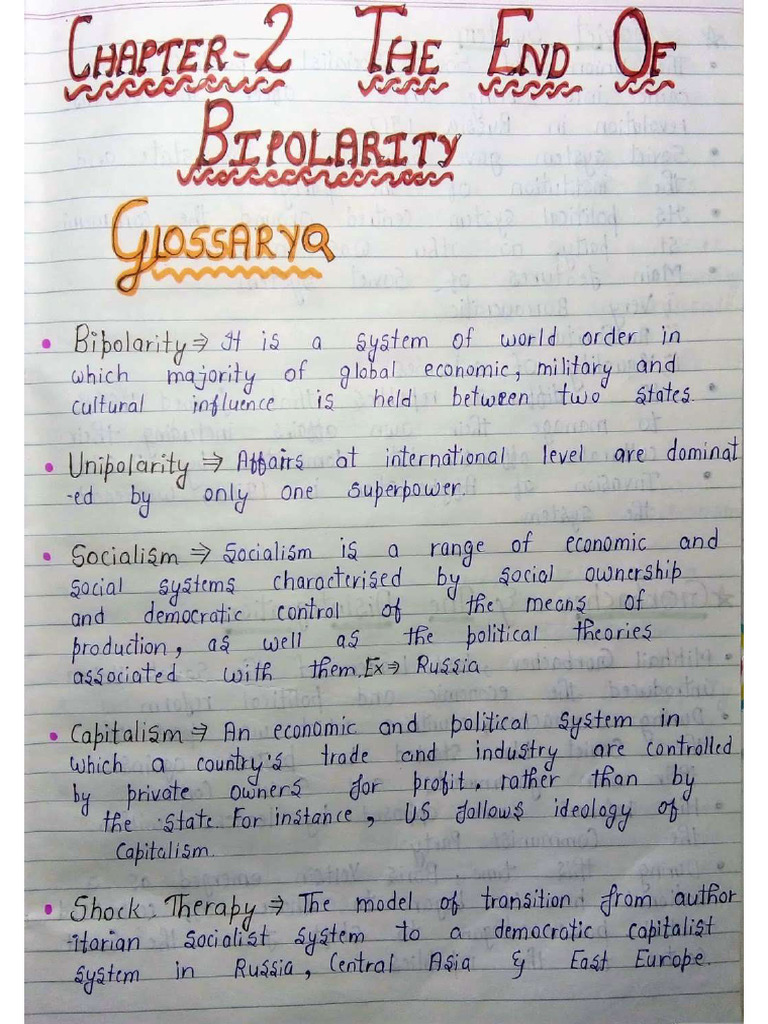 CHAPTER-2 THE END OF
BIPOLARITY
GLOSSARY
• Bipolarity ⇒ It is a system of world order in
which majority of global economic, military and
cultural influence is held between two states.
• Unipolarity ⇒ Affairs at international level are dominat
-ed by only one superpower.
• Socialism ⇒ Socialism is a range of economic and
social systems characterised by social ownership
and democratic control of the means of
production, as well as the political theories
associated with them. Ex ⇒ Russia
• Capitalism ⇒ An economic and political system in
which a country's trade and industry are controlled
by private owners for profit, rather than by
the state. For instance, US follows ideology of
Capitalism.
• Shock Therapy ⇒ The model of transition from author
-itarian socialist system to a democratic capitalist
system in Russia, Central Asia & East Europe.